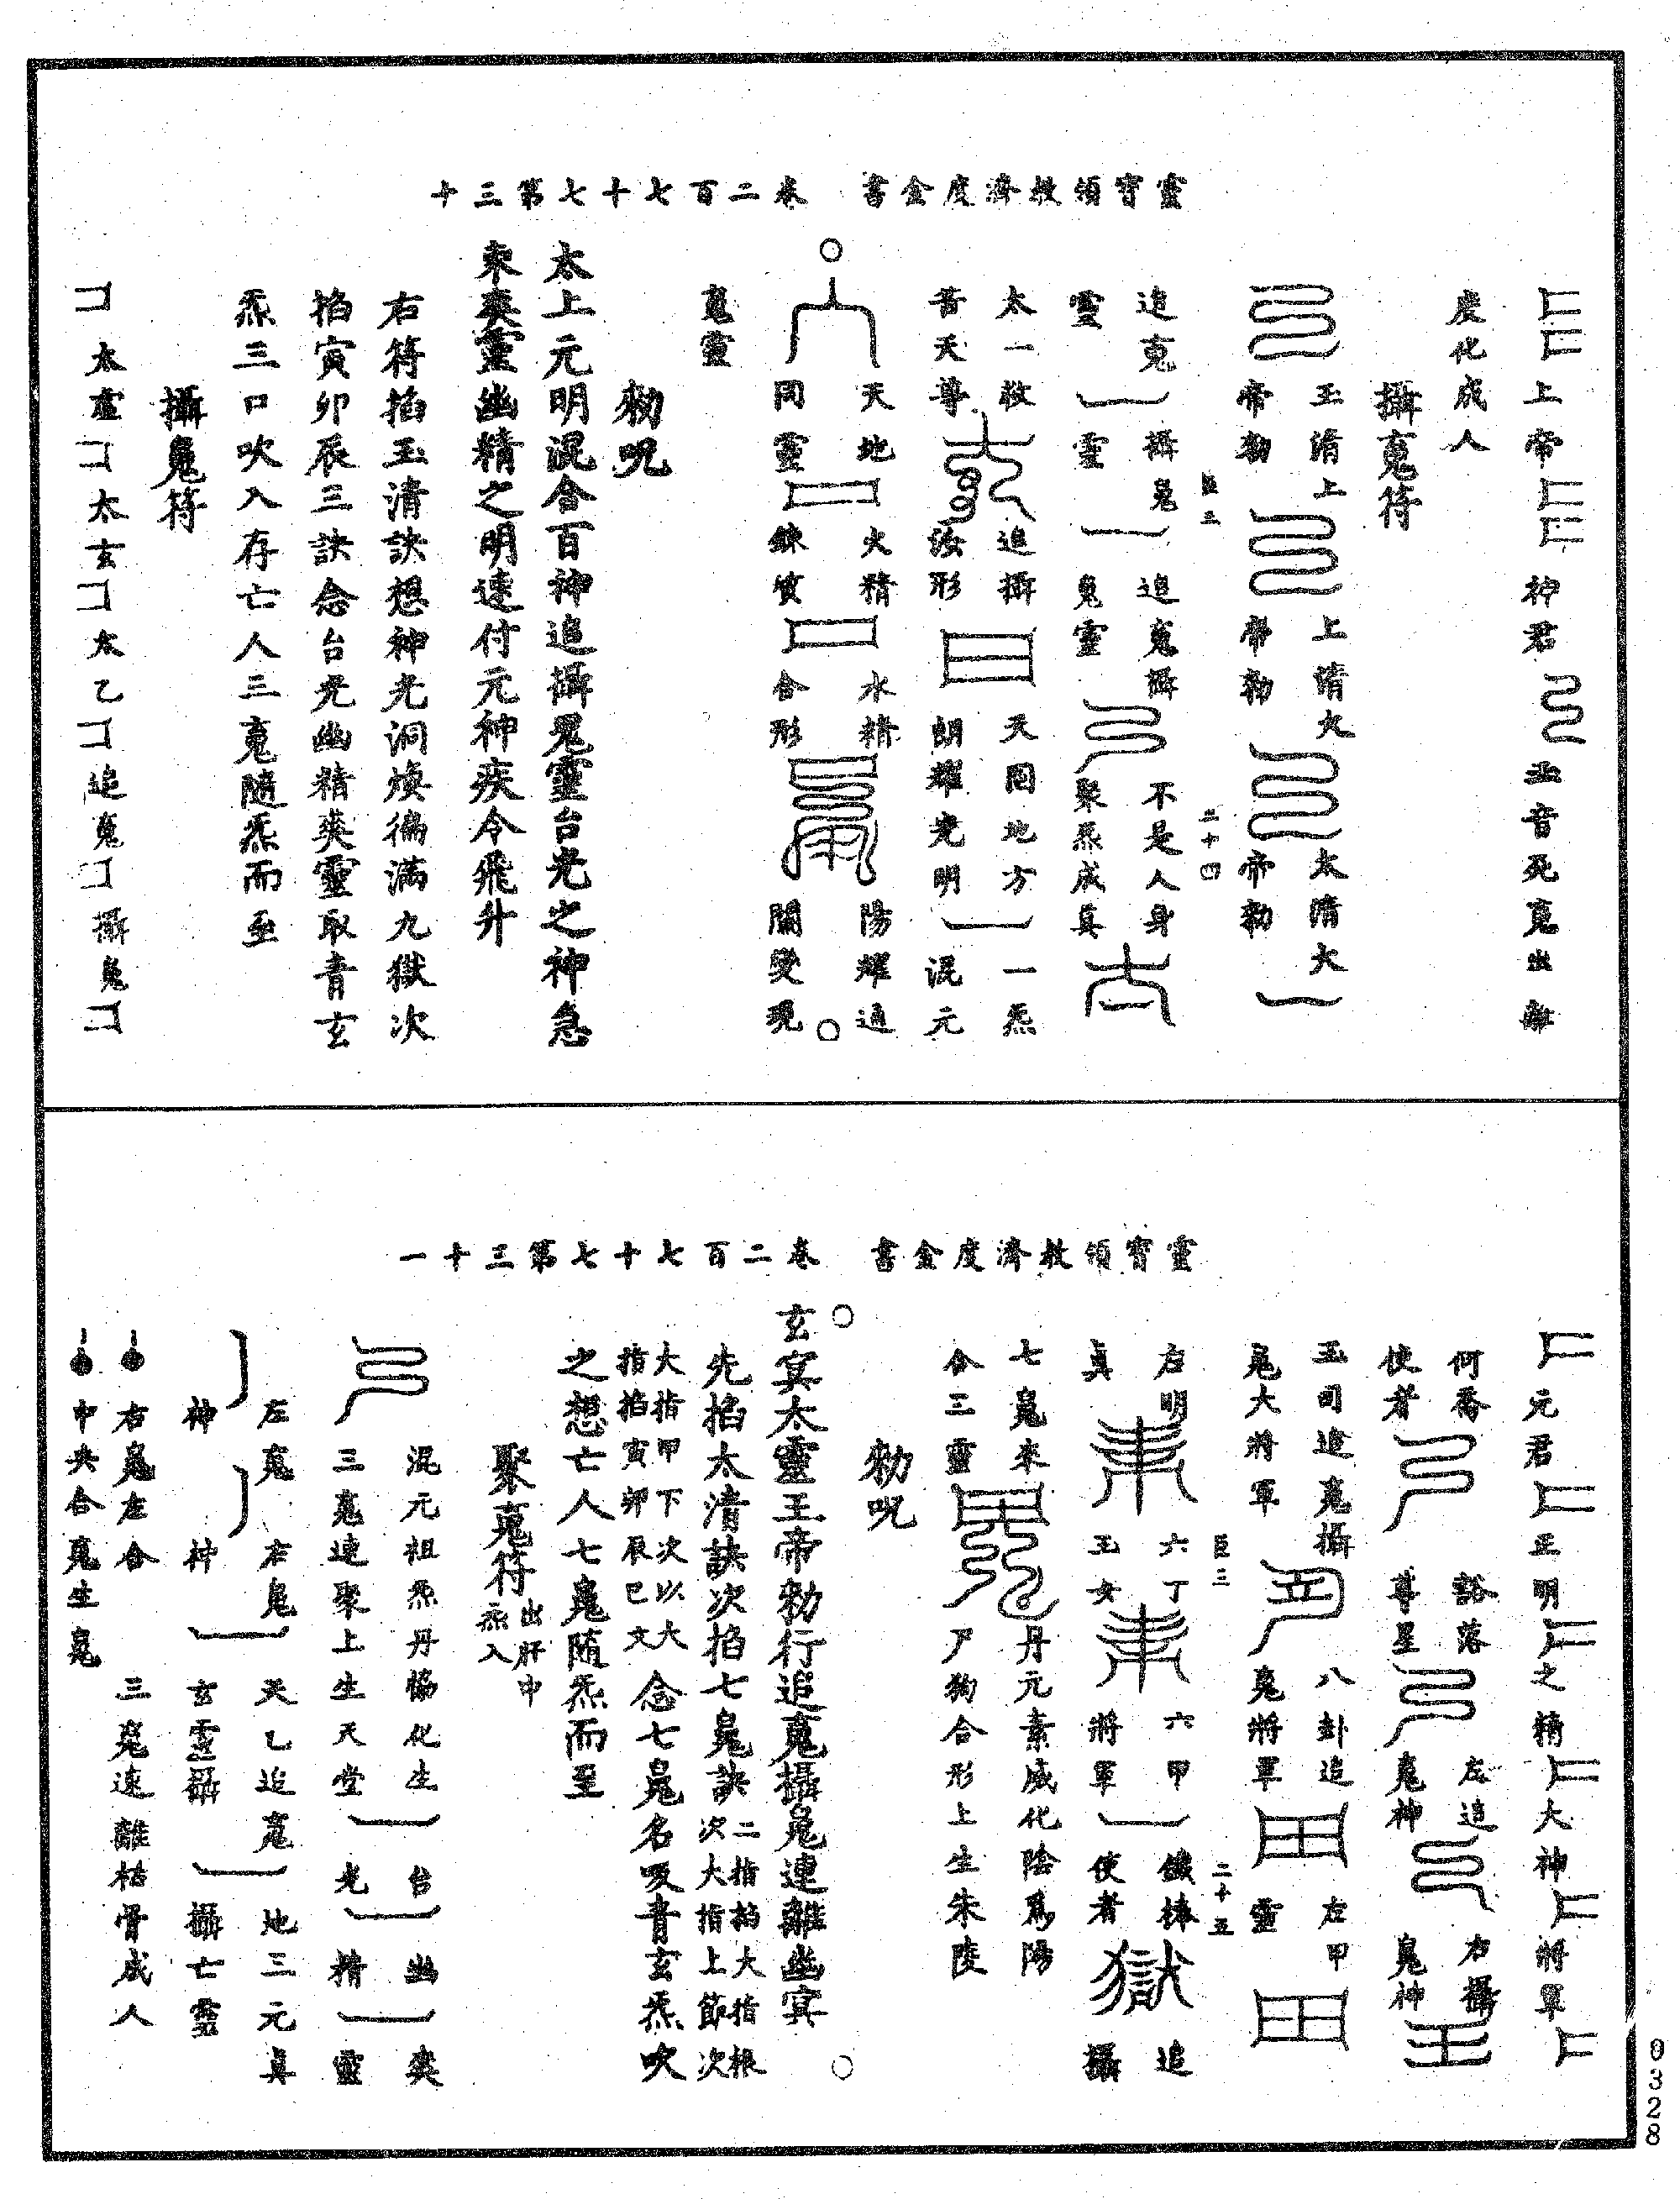 靈寶領教濟度金書　卷二百七十七第三十
上帝　柠君　幽音死䰟出離
度化成人
攝䰟符
玉清上帝勑　上清大帝勑　太清大帝勑
追䰟靈　攝魄靈　追䰟攝魄靈　不是人身聚炁成真
太一救苦天尊　追攝汝形　天圓地方朗耀光明　一炁混元
天地同靈　火精鍊質　水精合形　陽耀通關變現
䰟靈
勑呪
太上元明混合百神追攝䰟靈台光之神急
來爽靈幽精之明速付元神疾令飛升
右符掐玉清訣想神光洞煥徧滿九獄次
掐寅卯辰三訣念台光幽精爽靈取青玄
炁三口吹入存亡人三䰟隨炁而至
攝魄符
太虛　太玄　太乙　追䰟　攝魄
靈寶領教濟度金書　卷二百七十七第三十一
元君　正明　之精　大神　將軍
何喬使者　谿落尊星　左追䰟神　右攝魄神
玉司追䰟攝魄大將軍　八卦追䰟將軍　左甲靈
右明真　六丁玉女　六甲將軍　鐵棒使者　追攝
七魄來合三靈　丹元素威化陰爲陽尸狗合形上生朱陵
勑呪
玄冥太靈玉帝勑行追䰟攝魄連離幽冥
先掐太清訣次掐七魄訣次大指上節次二指掐大指根
大指甲下次以大指掐寅卯辰巳文念七魄名吸青玄炁吹
之想亡人七魄隨炁而至
聚䰟符出肝中炁入
混元祖炁丹㠾化生三䰟連聚上生天堂　台光　幽精　爽靈
左䰟神　右魄神　天乙追䰟玄靈攝　地三元真攝亡靈
右魄左合　三䰟遠離枯骨成人
中央合䰟生魄
臣三　二十四
臣三　二十五
0328